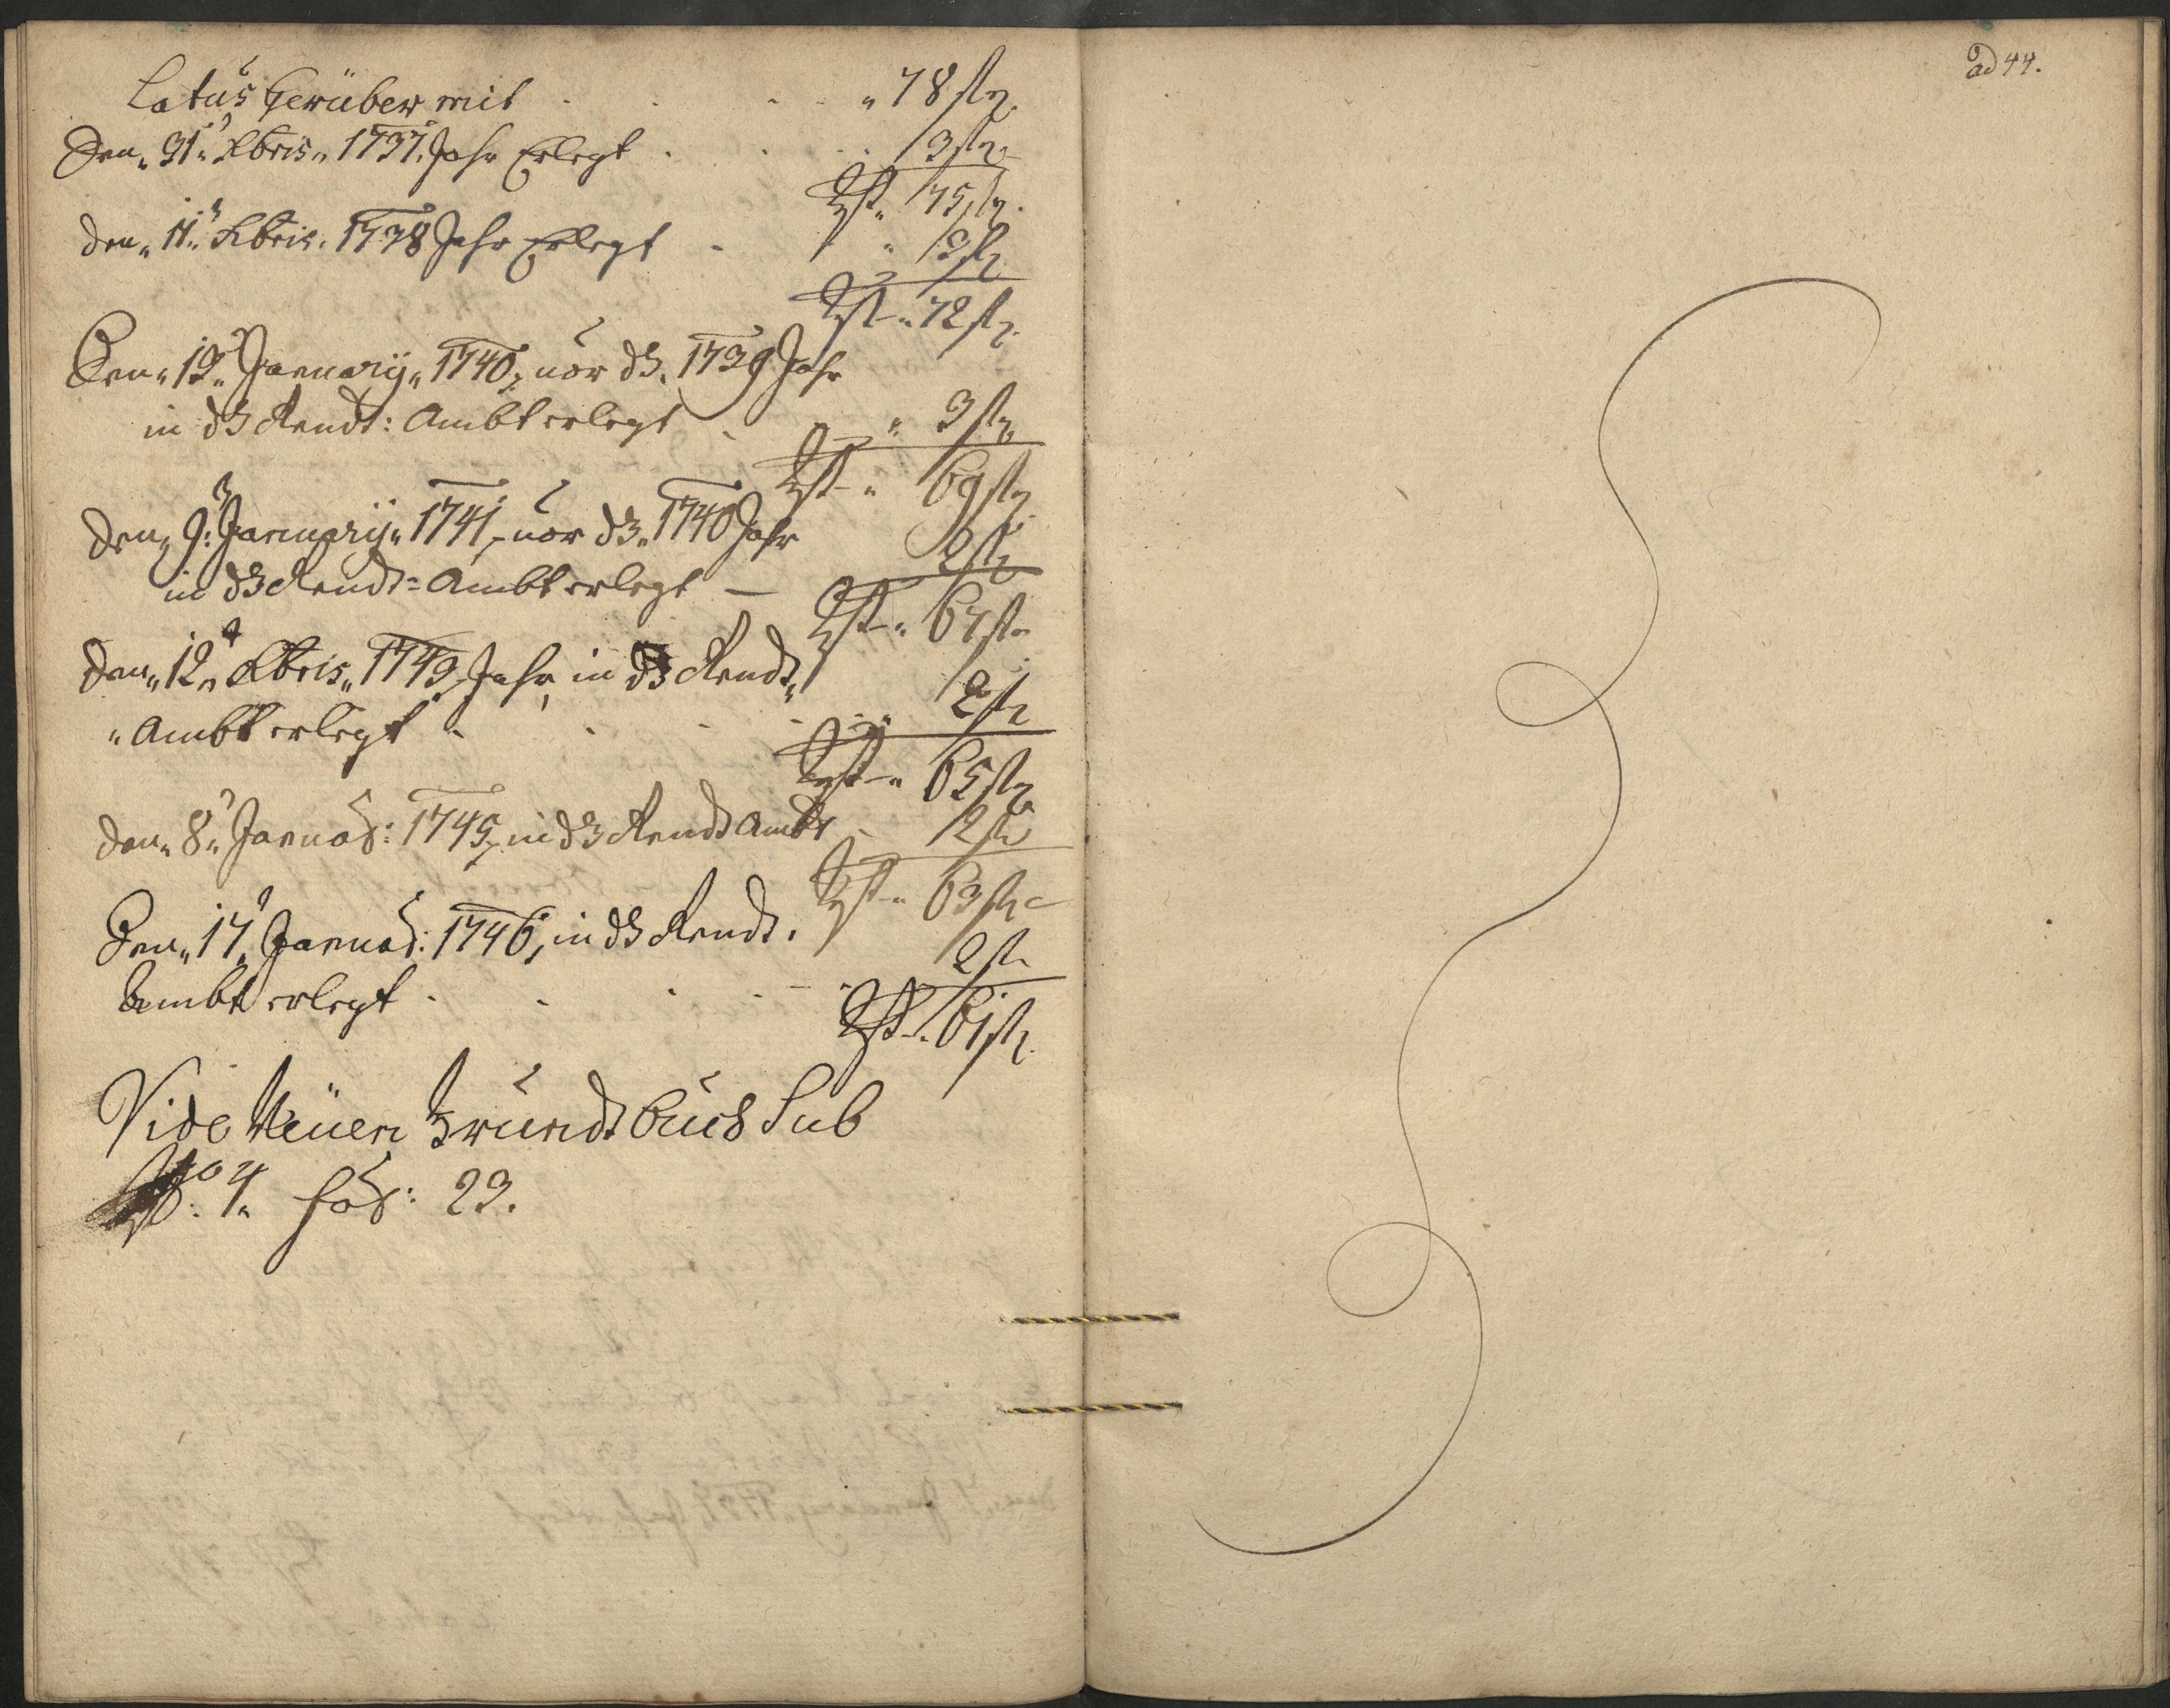 Latus herüber mit . . . . „ 78 fl.
Den „ 31ᵗ Xbris „ 1737. Jahr Erlegt . . . 3 fl.
Rst „ 75 fl.
den „ 11ᵗ Xbris. 1738 Jahr Erlegt . „ 3 fl.
Rst „ 72 fl.
Den „ 19ᵗ January „ 1740, vor dß. 1739 Jahr
in dß Rendt: Ambt erlegt . „ 3 fl.
Rst „ 69 fl.
den „ 9ᵗ January „ 1741, vor dß „ 1740 Jahr
in dß Rendt= Ambt erlegt — 2 fl.
Rst „ 67 fl.
den „ 12ᵗ Xbris „ 1743, Jahr, in dß Rendt „
„ Ambt erlegt . . . . 2 fl.
Rst „ 65 fl.
den „ 8ᵗ Januar: 1745, in dß Rendt Ambt 2 fl.
Rst „ 63 fl.
Den „ 17ᵗ Januar: 1746, in dß Rendt.
Ambt erlegt . . . . 2 fl.
Rst „ 61 fl.
Vide Neüen Grundt Buch Sub
Nº: 4. fol: 23.
ad 44.